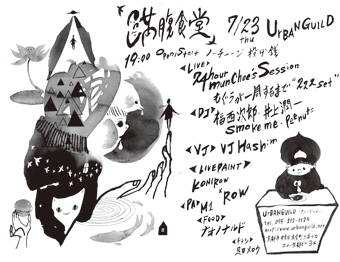 満腹食堂 7/23 THU URBANGUILD
19:00 Open/Start ノーチャージ 投げ銭
<LIVE>
24hour
mun Chee's Session
もぐらが一周するまで "222 set"
<DJ> 福西次郎. 井上潤一
smoke me. Peanuts
<VJ> VJ Hashim
<LIVEPAINT>
KONIROW
<PA> M1 'ROW
<FOOD>
<ドリンク>
URBANGUILD
Tel 075-212-1125
http://www.urbanguild.net